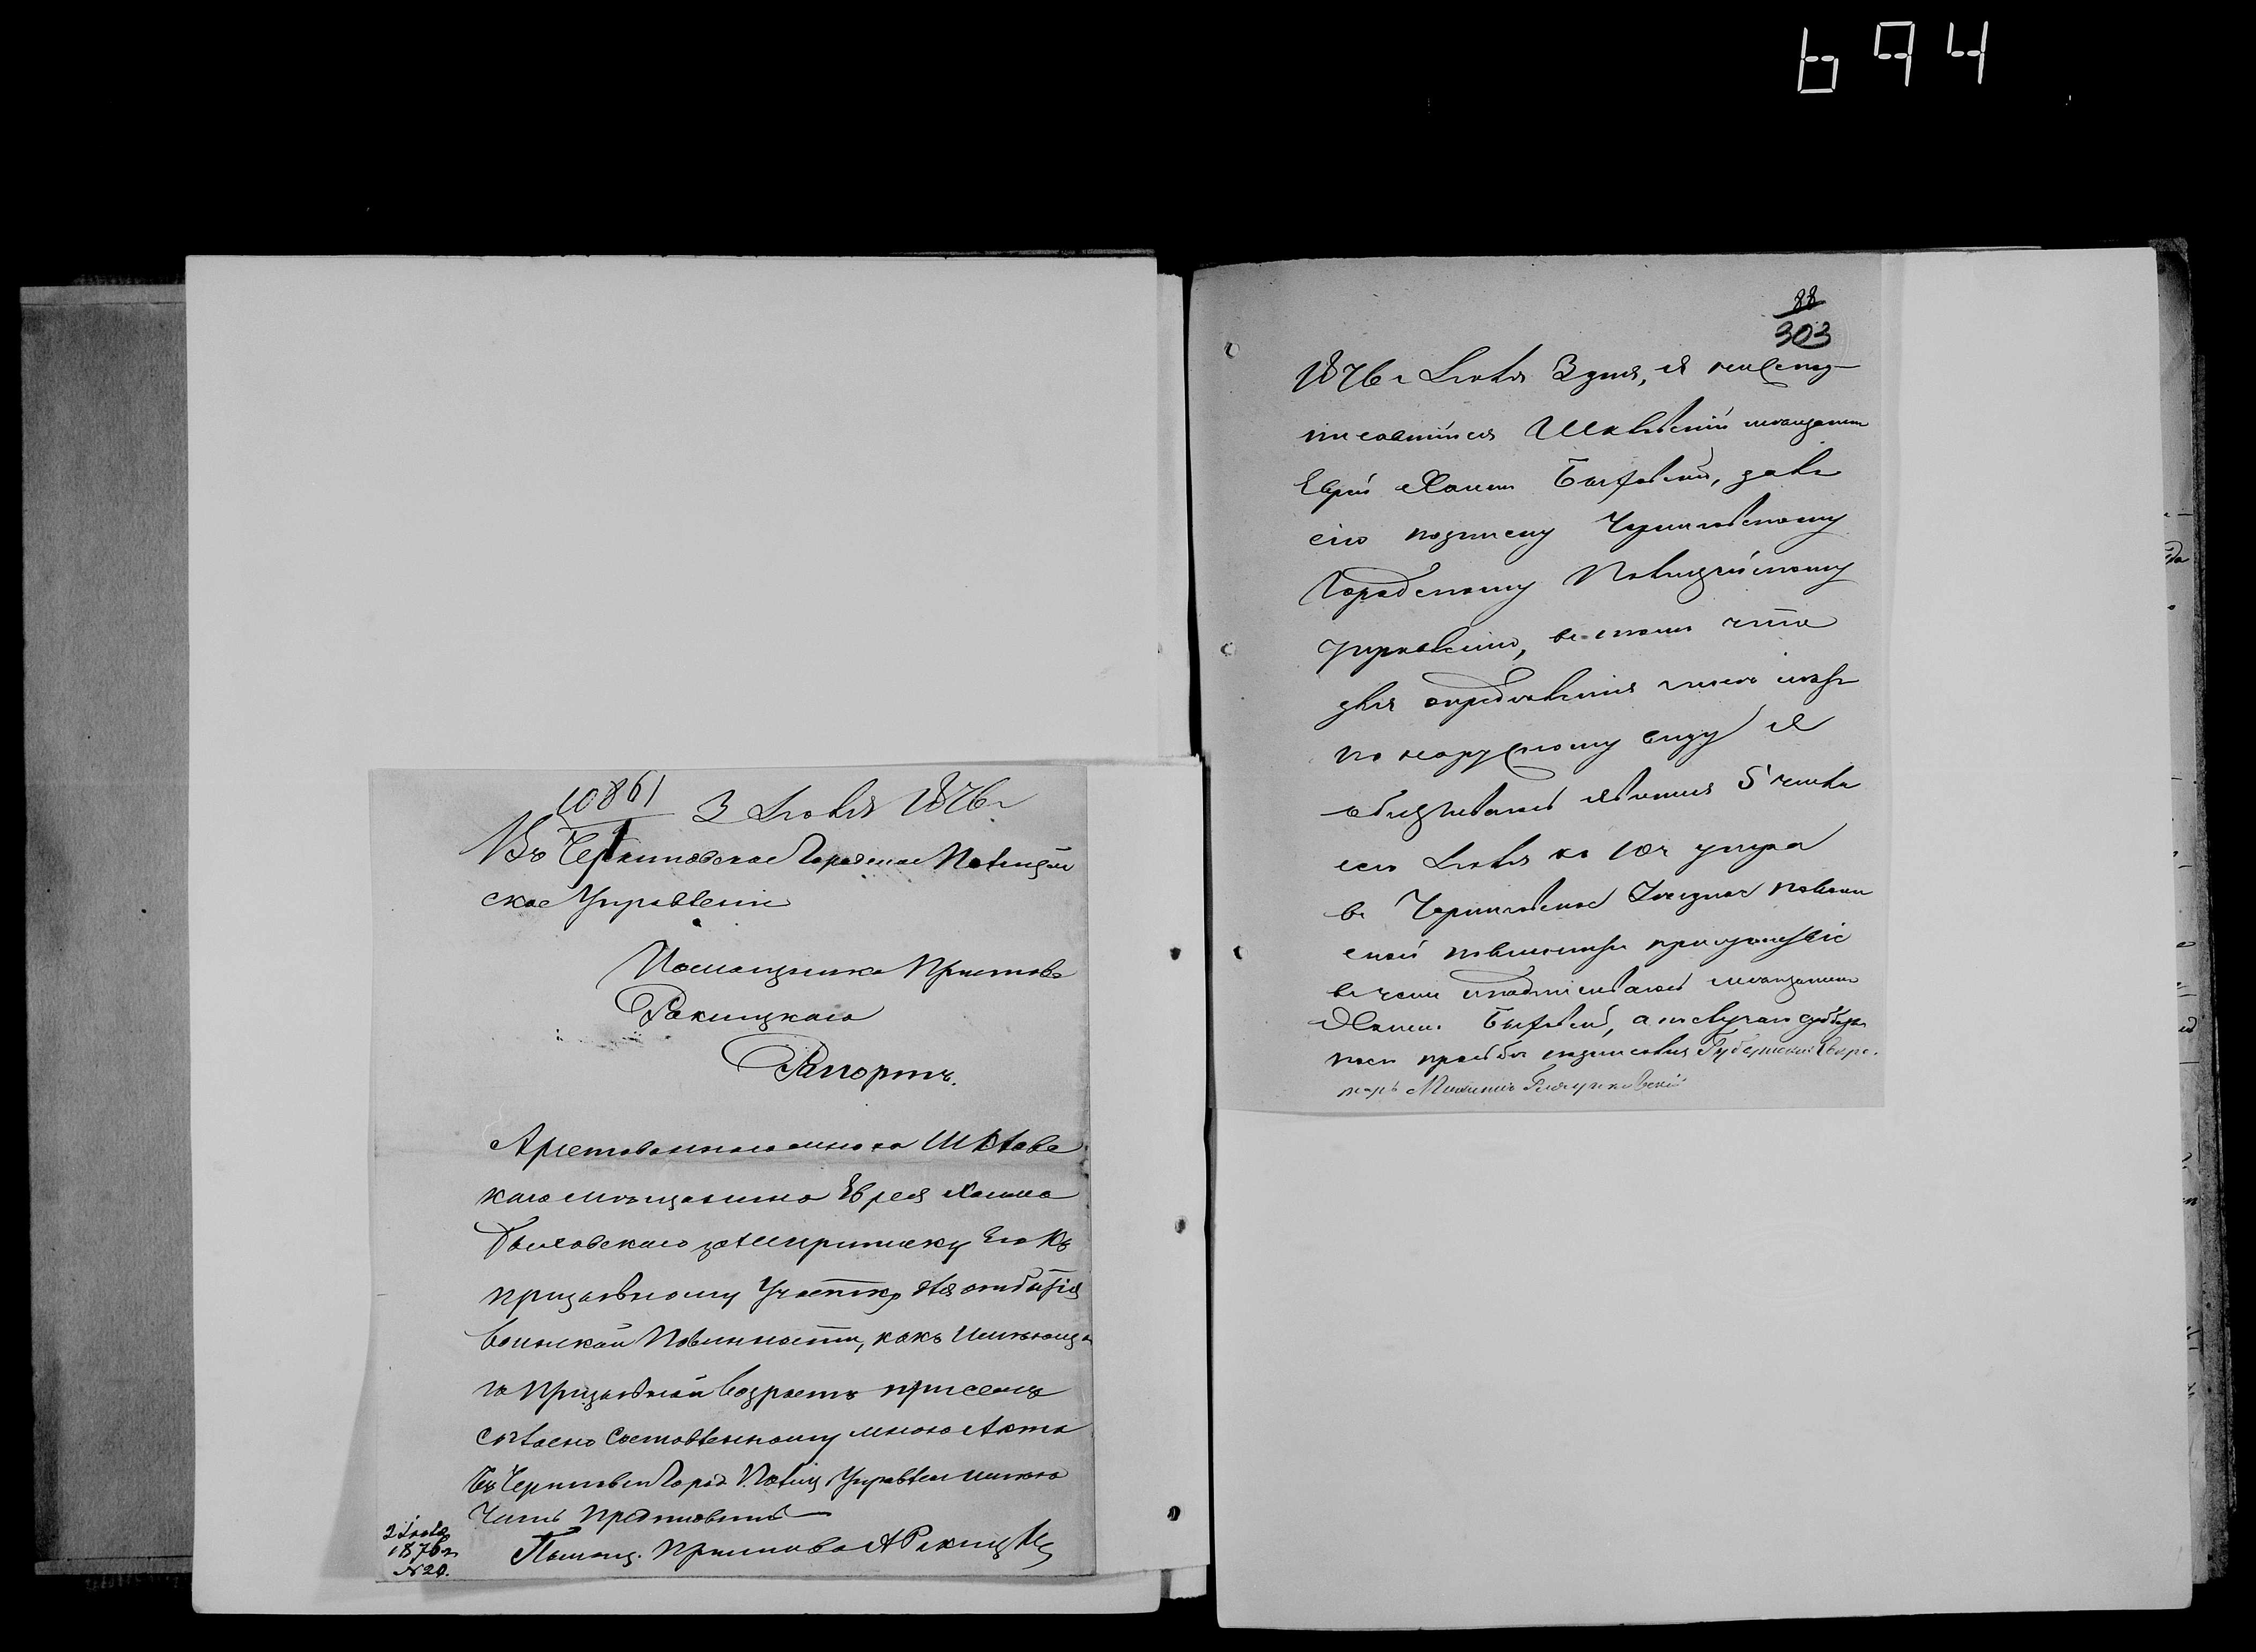 694
10861
3 Іюля 1876 г
Въ Черниговское Городское Полицей
ское Управленіе
Помощника Пристава
Ракицкаго
Рапортъ.
Арестованнаго мною Шклов
каго мѣщанина Еврея Хаима
Быховскаго за неприписку его къ
призывному Участку для отбытія
воинской Повинности, какъ имѣюща
го призывной возрастъ при семъ
согласно составленному мною Акта
въ Чернигов Город. Полиц Управлен имѣю
Честь представить
Помощ. Пристава А Ракицкій
2 Іюля
1876 г
№ 20.
88
303
1876 г Іюля 3 дня, я нижепод
писавшійся Шкловскій мѣщанинъ
Еврей Хаимъ Быховскій, далъ
сію подписку Черниговскому
Городскому Полицейскому
Управленію, въ томъ что
для опредѣленія моихъ лѣтъ
по наружному виду я
обязываюсь явиться 5 числа
сего Іюля къ 10 ч утра
въ Черниговское Уѣздное по воин
ской повинности присутствіе
въ чемъ и подписываюсь мѣщанинъ
Хаимъ Быховскій, а
просьбѣ Губернскій Секре
тарь